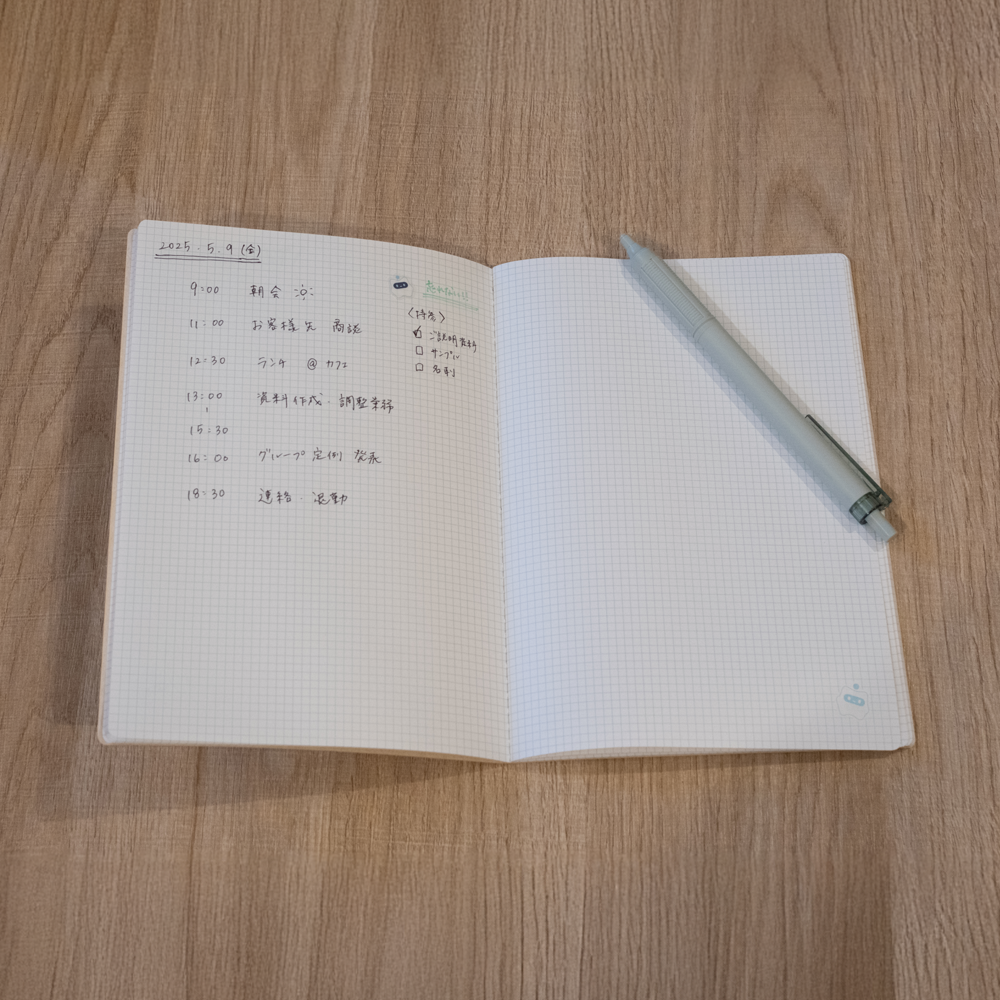 2025.5.9 (金)
9:00 朝会
11:00 お客様先 商談
12:30 ランチ @カフェ
13:00 資料作成・調整業務
15:30
16:00 グループ定例 発表
18:30 連絡・退勤
忘れない!
〈持参〉
ご説明資料
サンプル
名刺